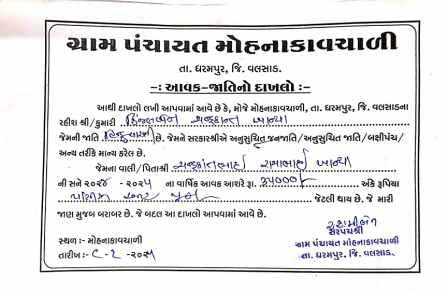 ગ્રામ પંચાયત મોહનાકાવચાળી
તા. ધરમપુર, જિ. વલસાડ.
-: આવક-જાતિનો દાખલો :-
આથી દાખલો લખી આપવામાં આવે છે કે, મોજે મોહનાકાવચાળી, તા. ધરમપુર, જિ. વલસાડના
રહીશ શ્રી/કુમારી
જેમની જાતિ હિન્દુ વારલી છે. જેમને સરકારશ્રીએ અનુસુચિત જનજાતિ/અનુસુચિત જાતિ/બક્ષીપંચ/
અન્ય તરીકે માન્ય કરેલ છે.
જેમના વાલી/પિતાશ્રી
ની સને ૨૦૨૪ - ૨૦૨૫ ના વાર્ષિક આવક આશરે રૂા. ૩૫૦૦૦/- અંકે રૂપિયા
જેટલી થાય છે. જે મારી
જાણ મુજબ બરાબર છે. જે બદલ આ દાખલો આપવામાં આવે છે.
સરપંચશ્રી
સ્થળ :- મોહનાકાવચાળી
ગ્રામ પંચાયત મોહનાકાવચાળી
તારીખ :-
તા. ધરમપુર, જિ. વલસાડ.